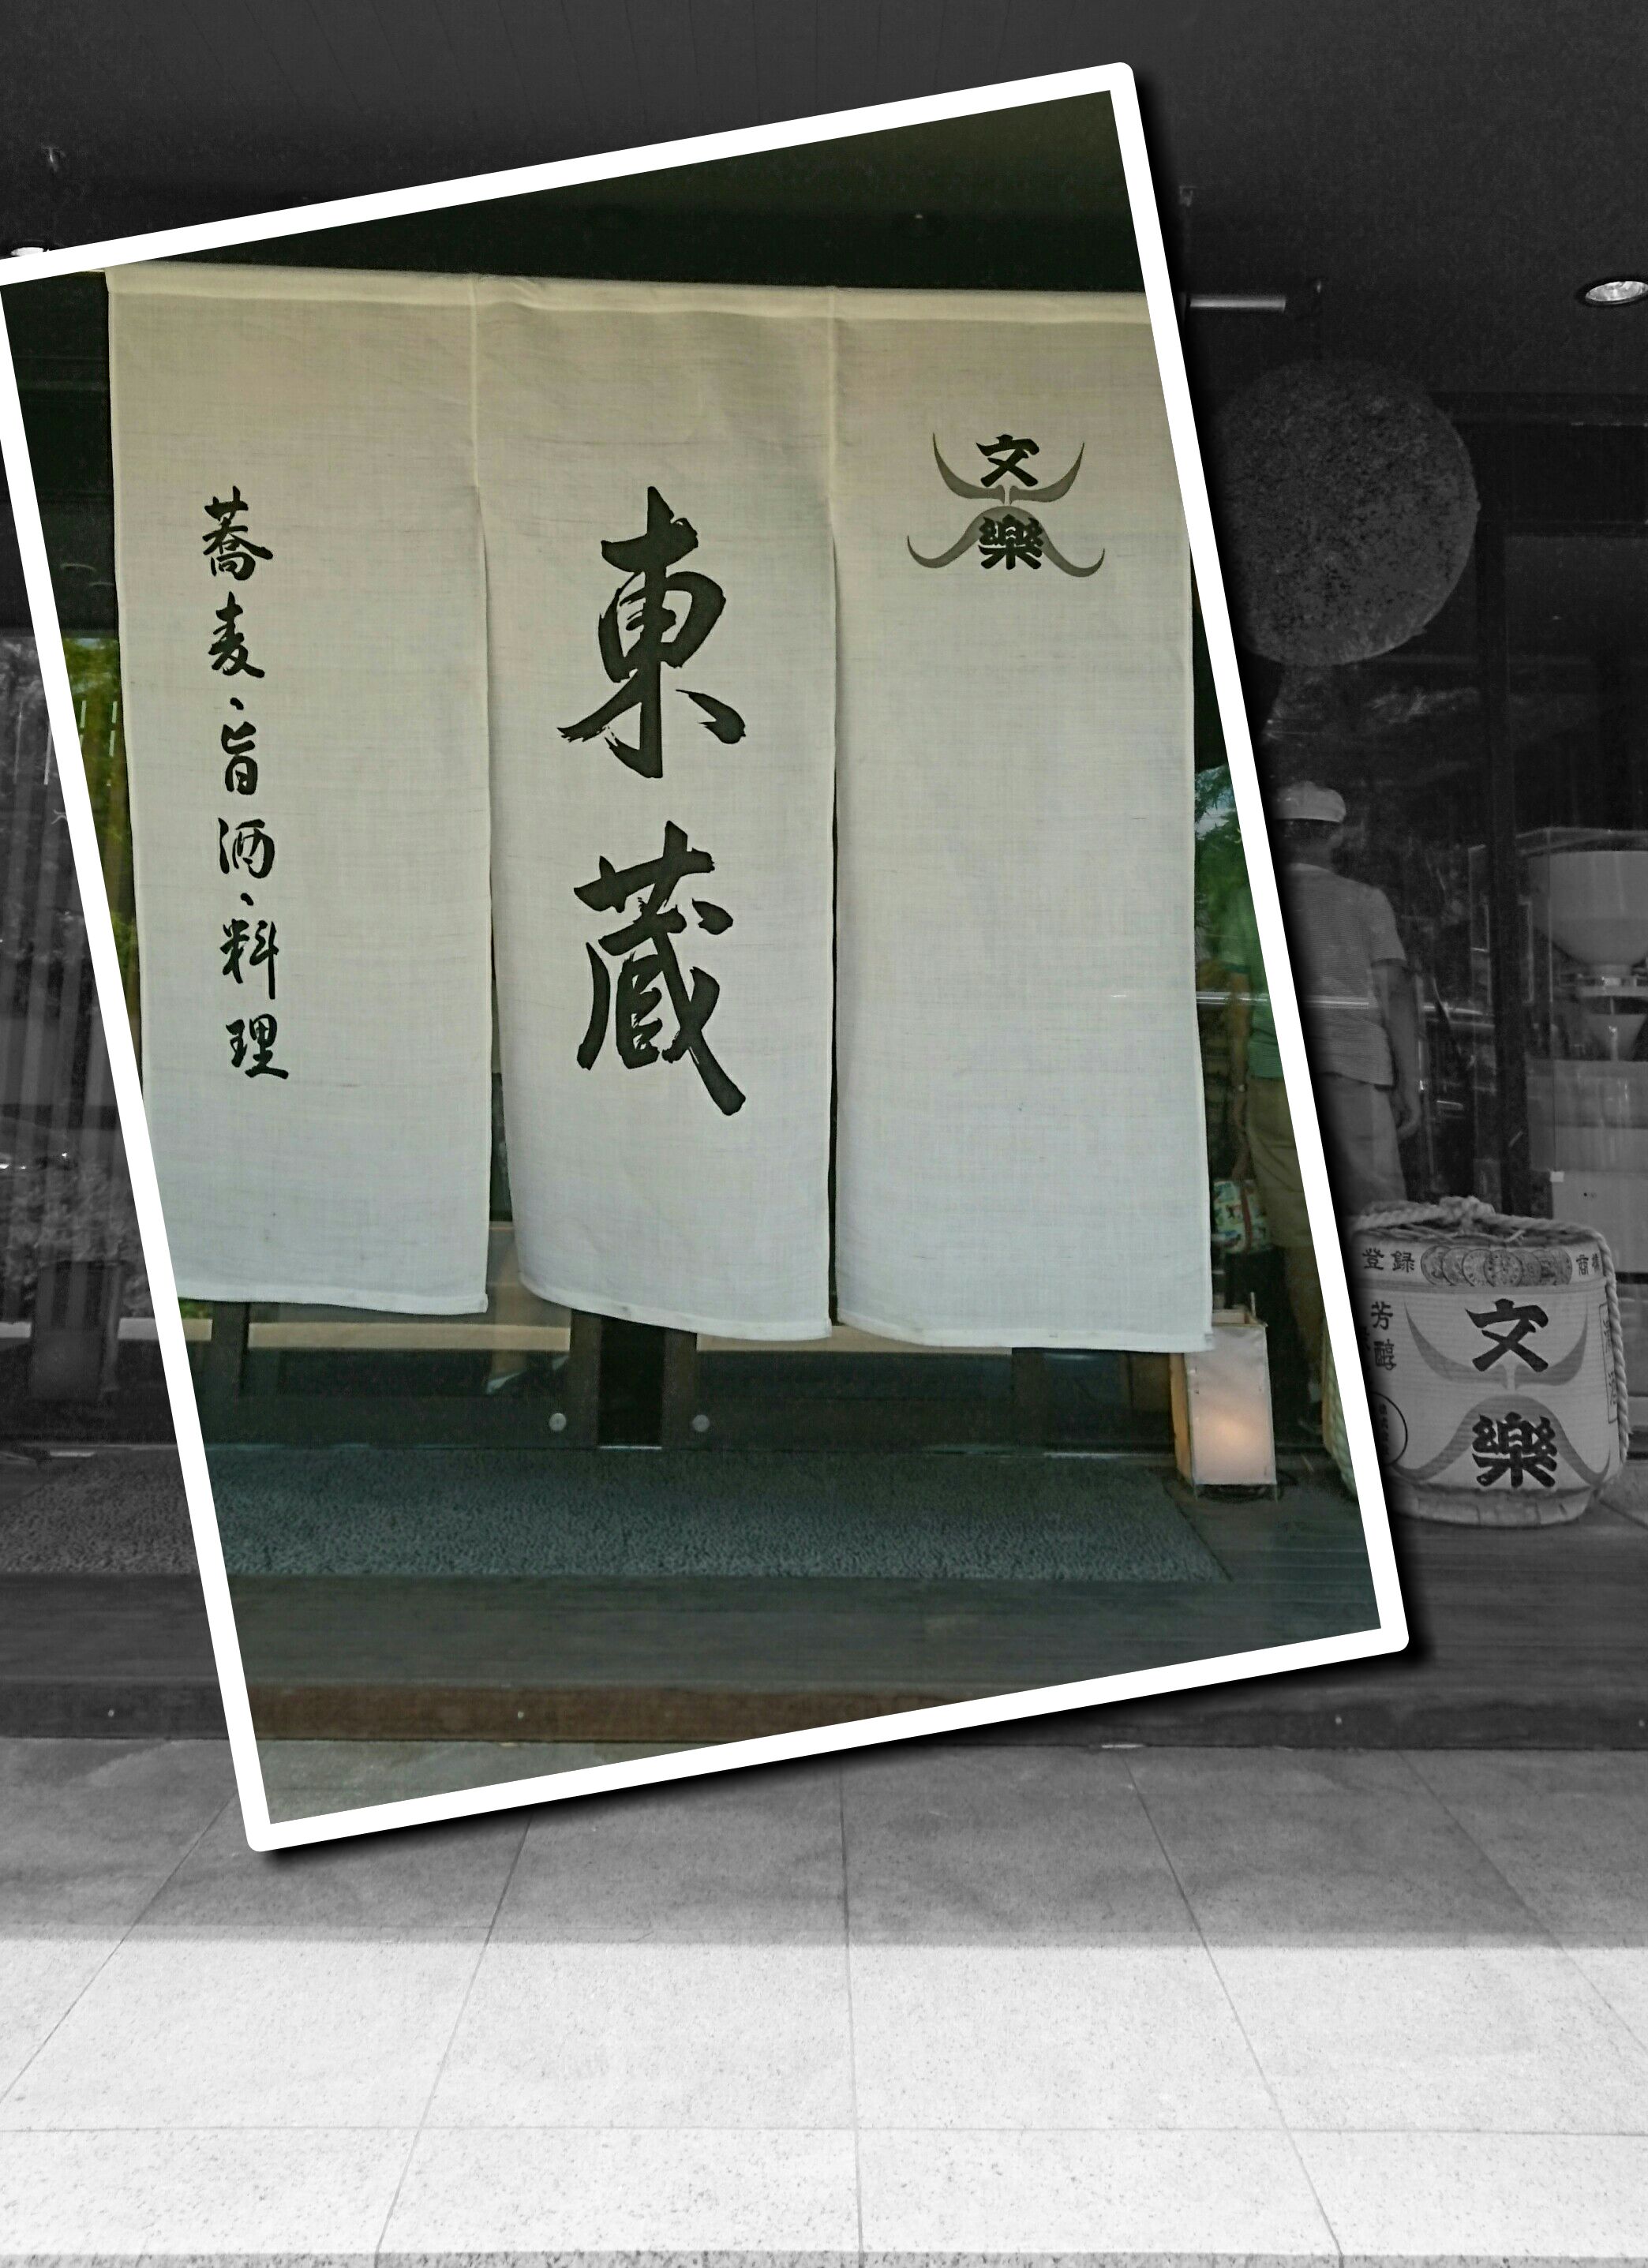 文
樂
東蔵
蕎麦、旨酒、料理
登録
芳醇
文
樂